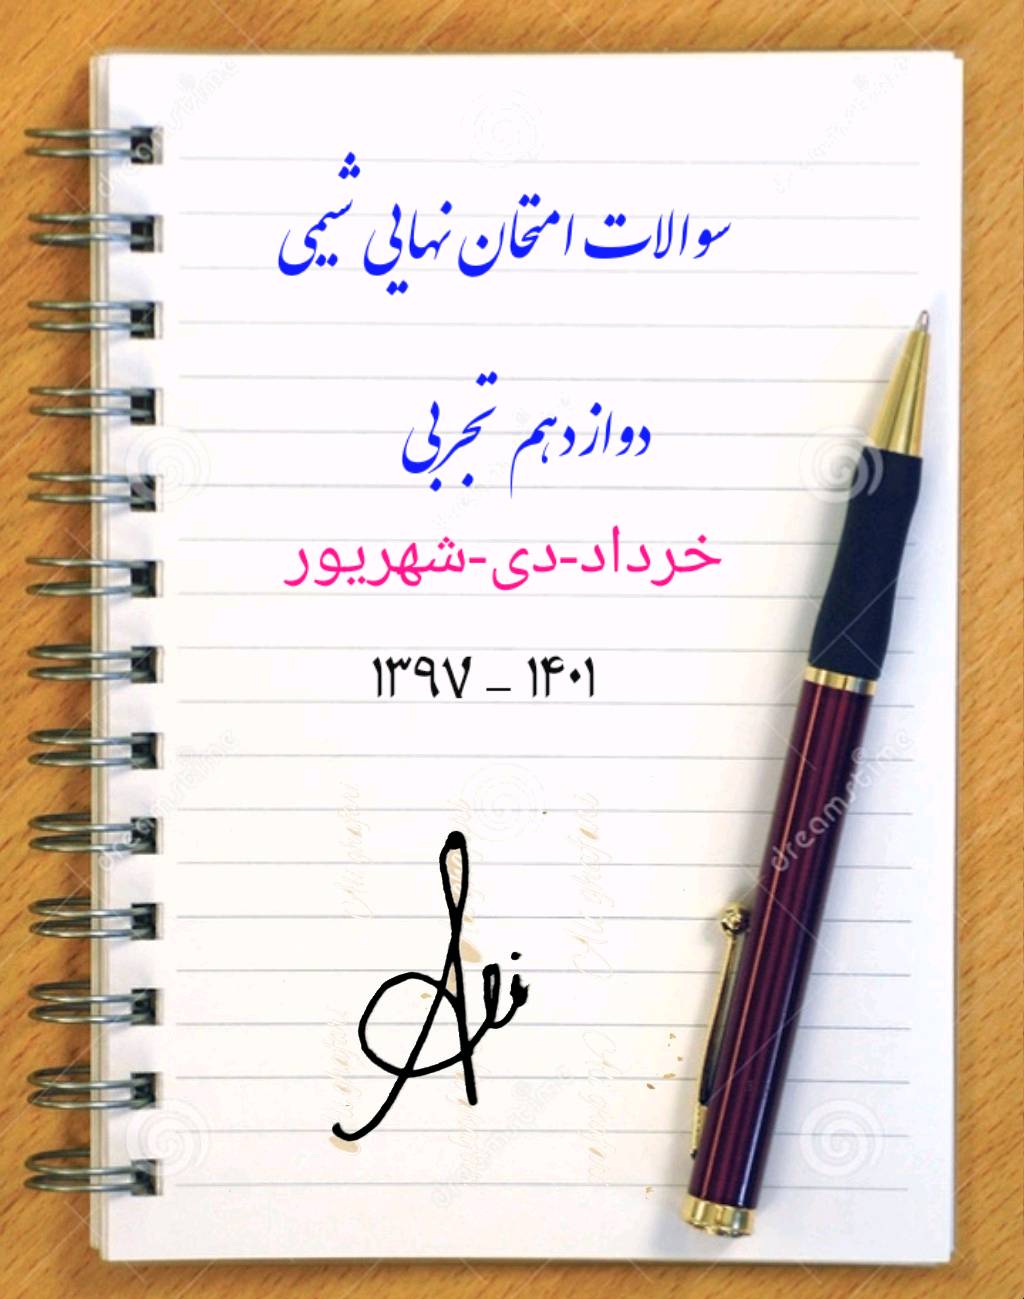 سوالات امتحان نهایی شیمی
دوازدهم تجربی
خرداد-دی-شهریور
۱۳۹۷ – ۱۴۰۱
Ali
dreamstime